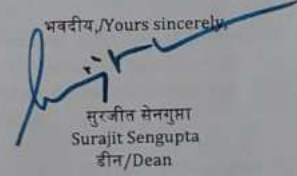 भवदीय,/Yours sincerely,
सुरजीत सेनगुप्ता
Surajit Sengupta
डीन/Dean